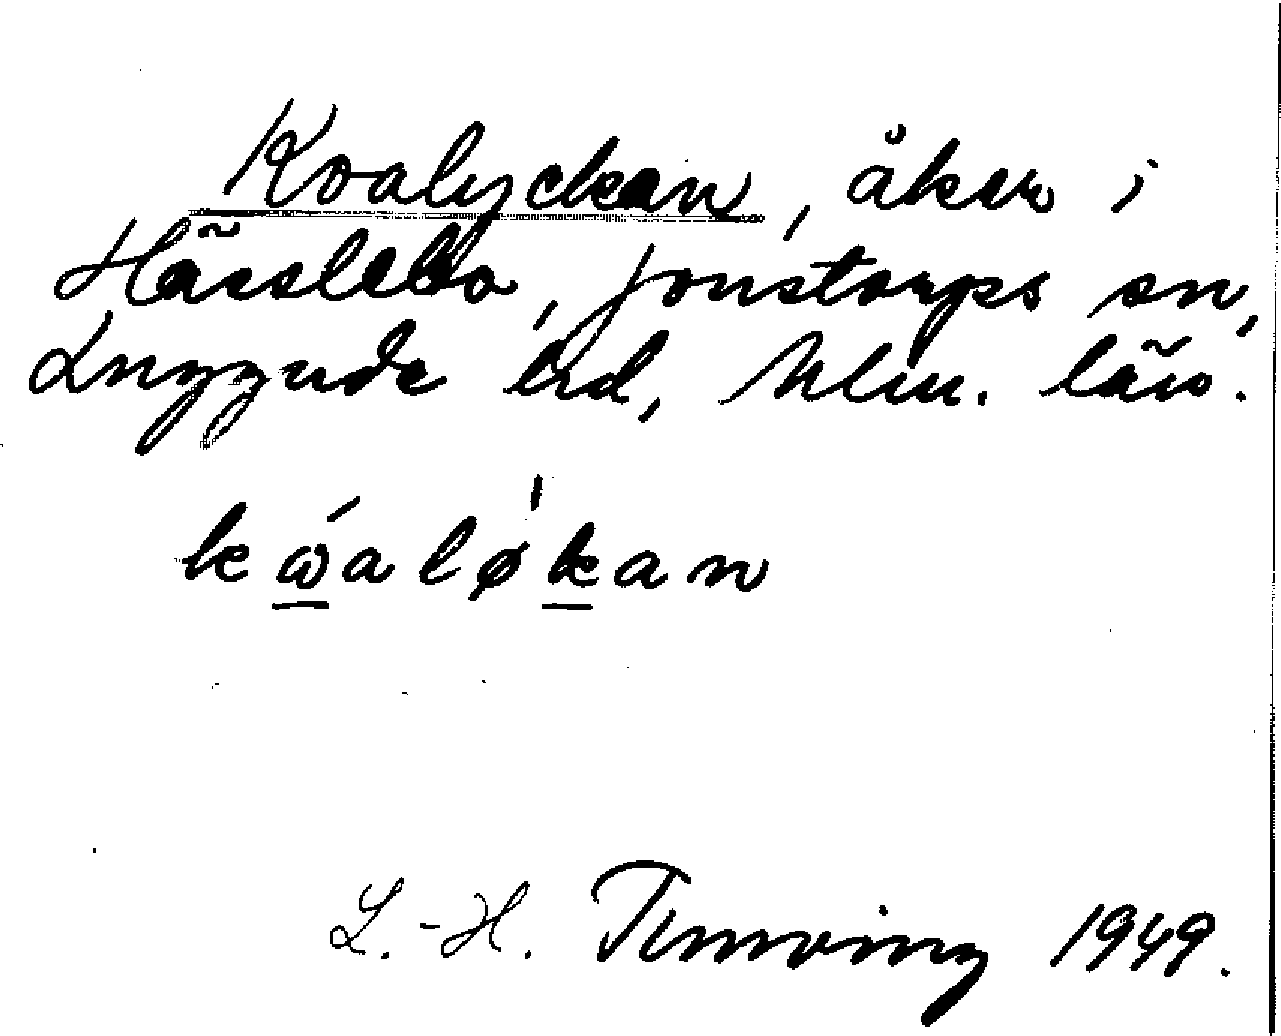 Kvalyckan, åker i
Hässlebo, Jonstorps sn,
Luggude hd, Mlm. län.
kώaløkan
L.-H. Tunving 1949.